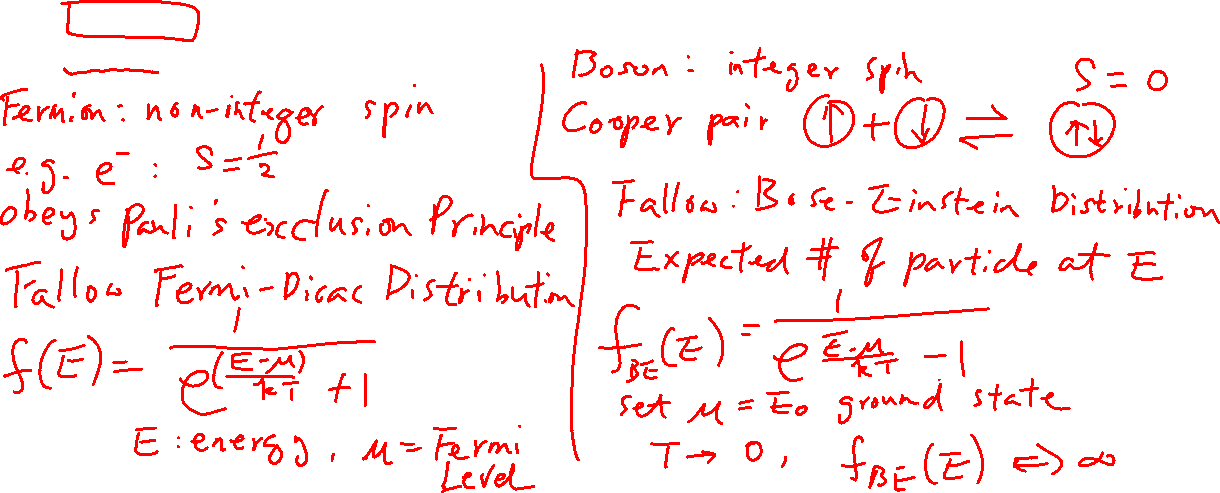 Fermion: non-integer spin
e.g. e⁻ : S = 1/2
obeys Pauli's excclusion Principle
Fallow Fermi-Dirac Distribution
f(E) = 1/(e^((E-μ)/kT) + 1)
E : energy, μ = Fermi
Level
Boson : integer spin
S = 0
Cooper pair (↑) + (↓) ⇌ (↑↓)
Fallow : Bose-Einstein Distribution
Expected # of particle at E
f_BE(E) = 1/(e^((E-μ)/kT) - 1)
set μ = E₀ ground state
T → 0, f_BE(E) ⇔ ∞